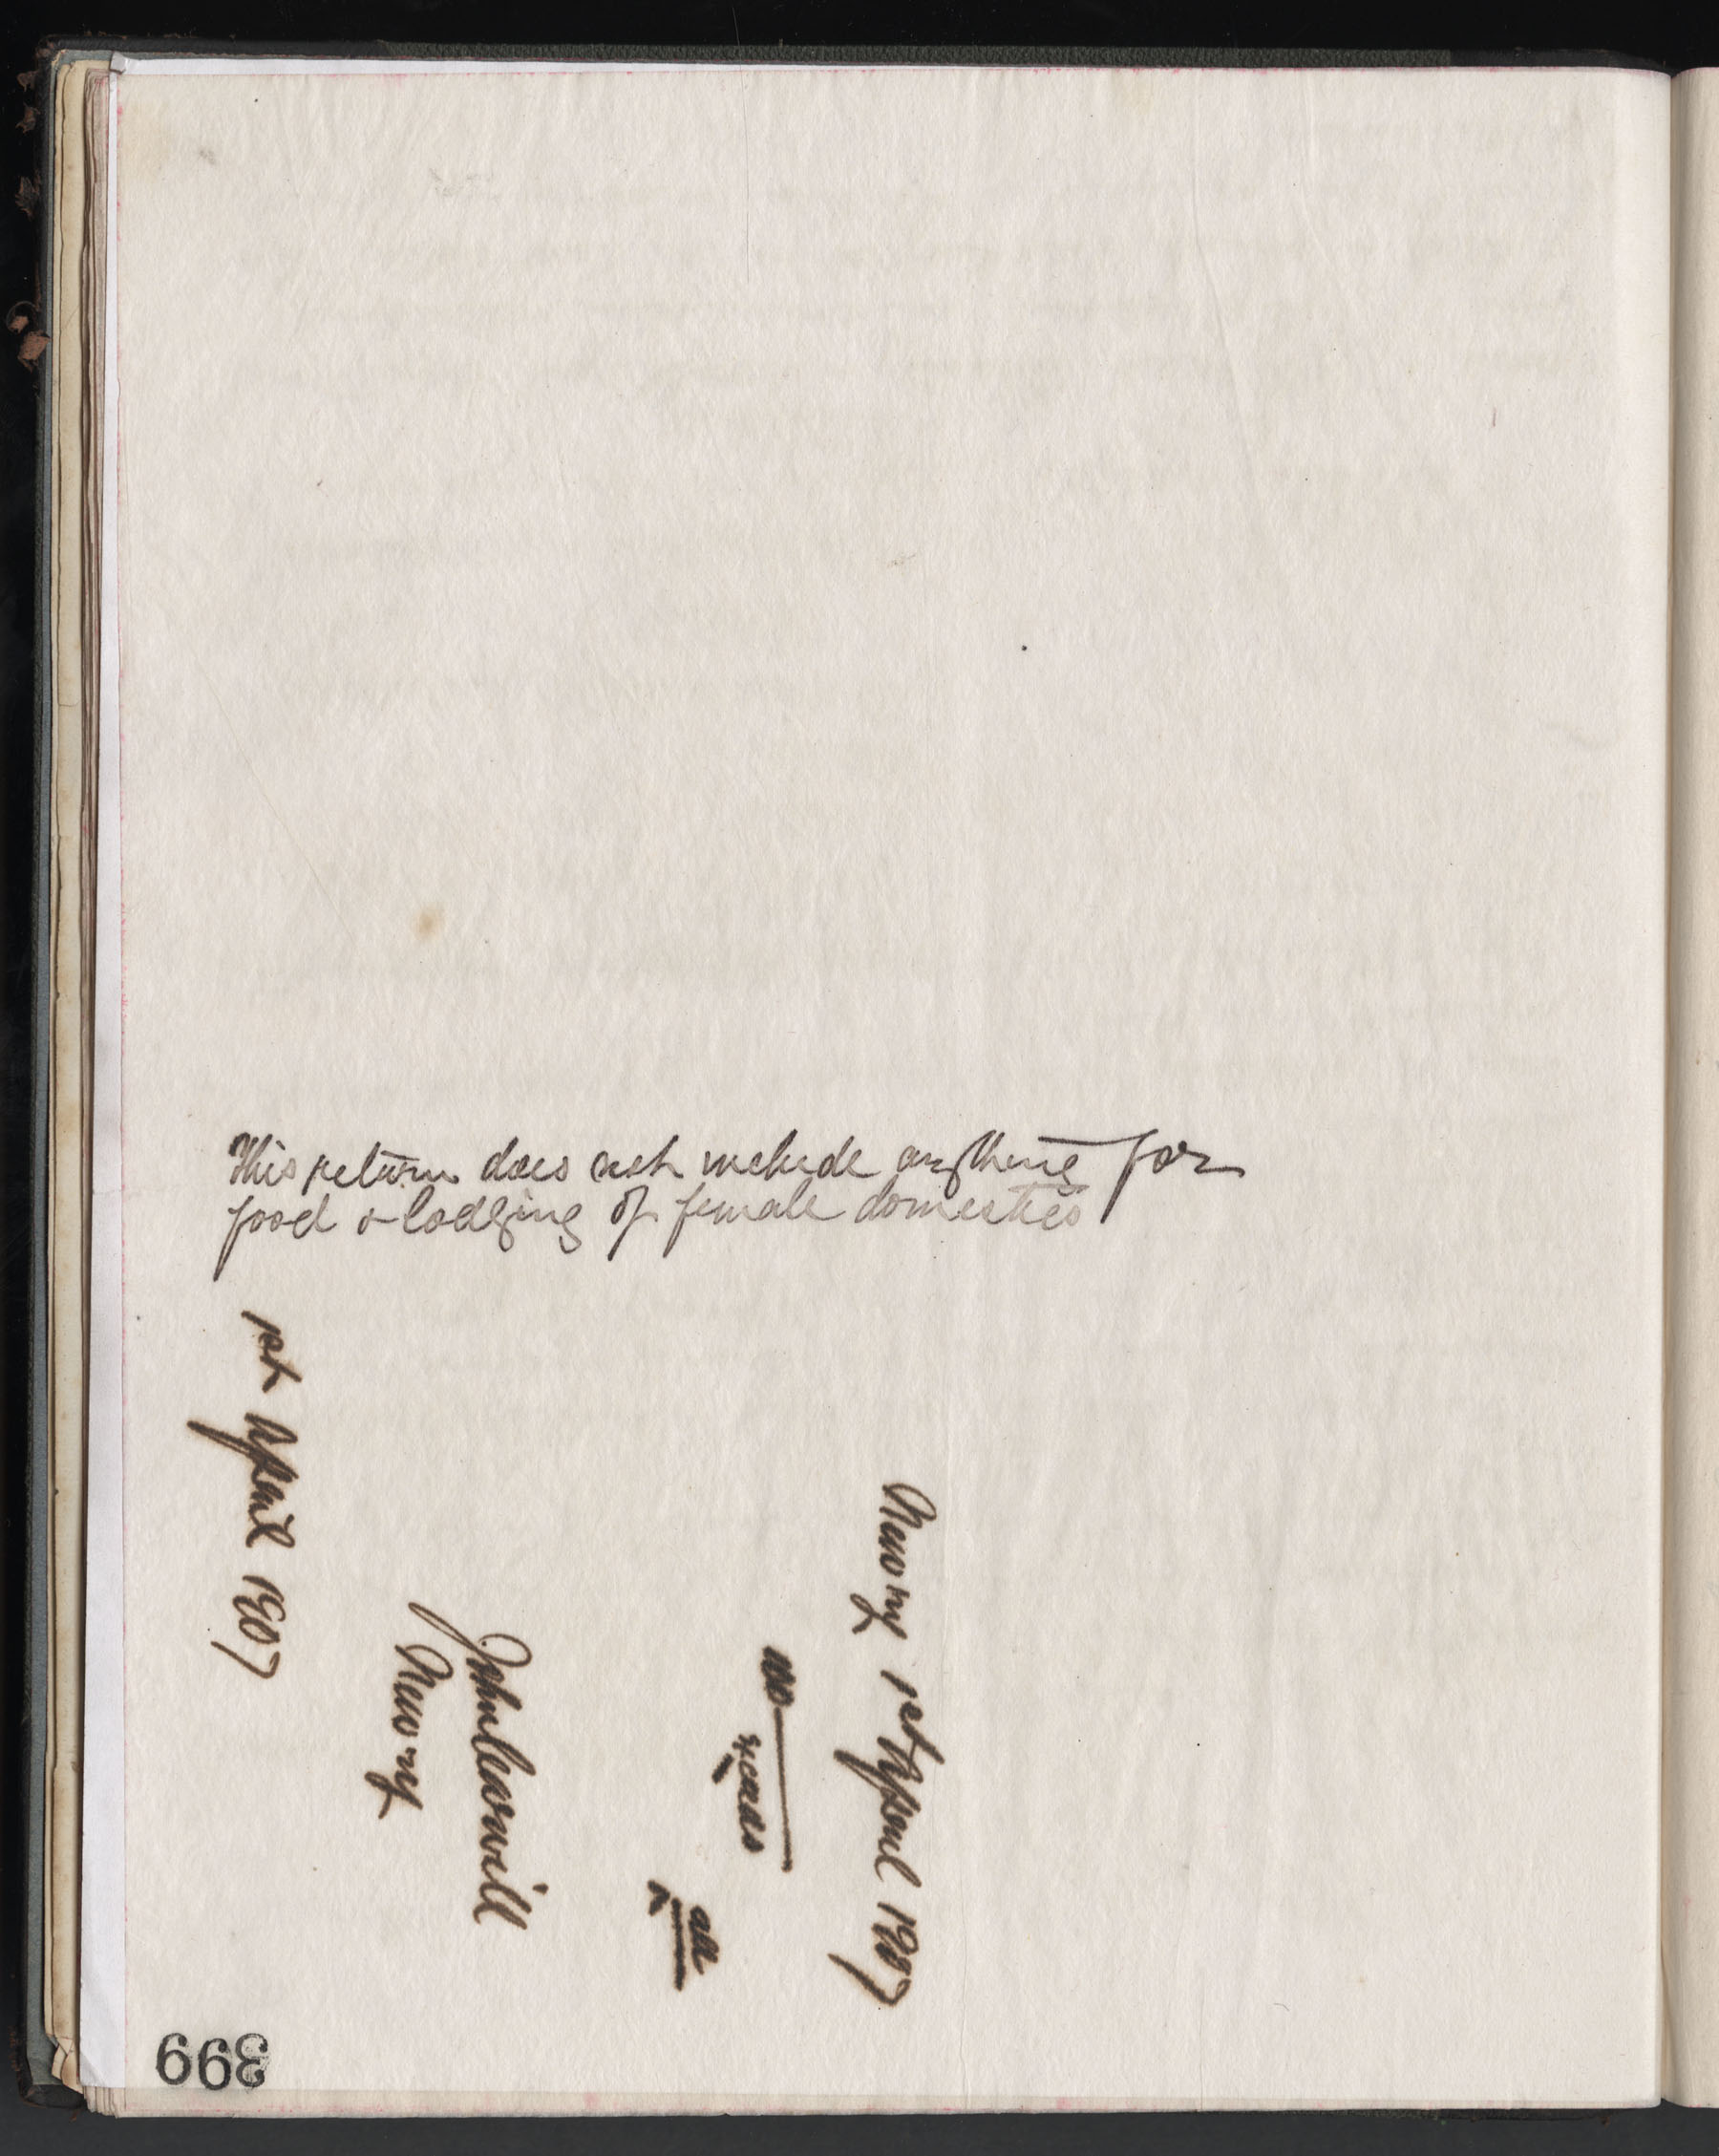 This return does not include anything for
food & lodging of female domestics
Newry 1st April 1907
no
all
Newry
1st April 1907
399